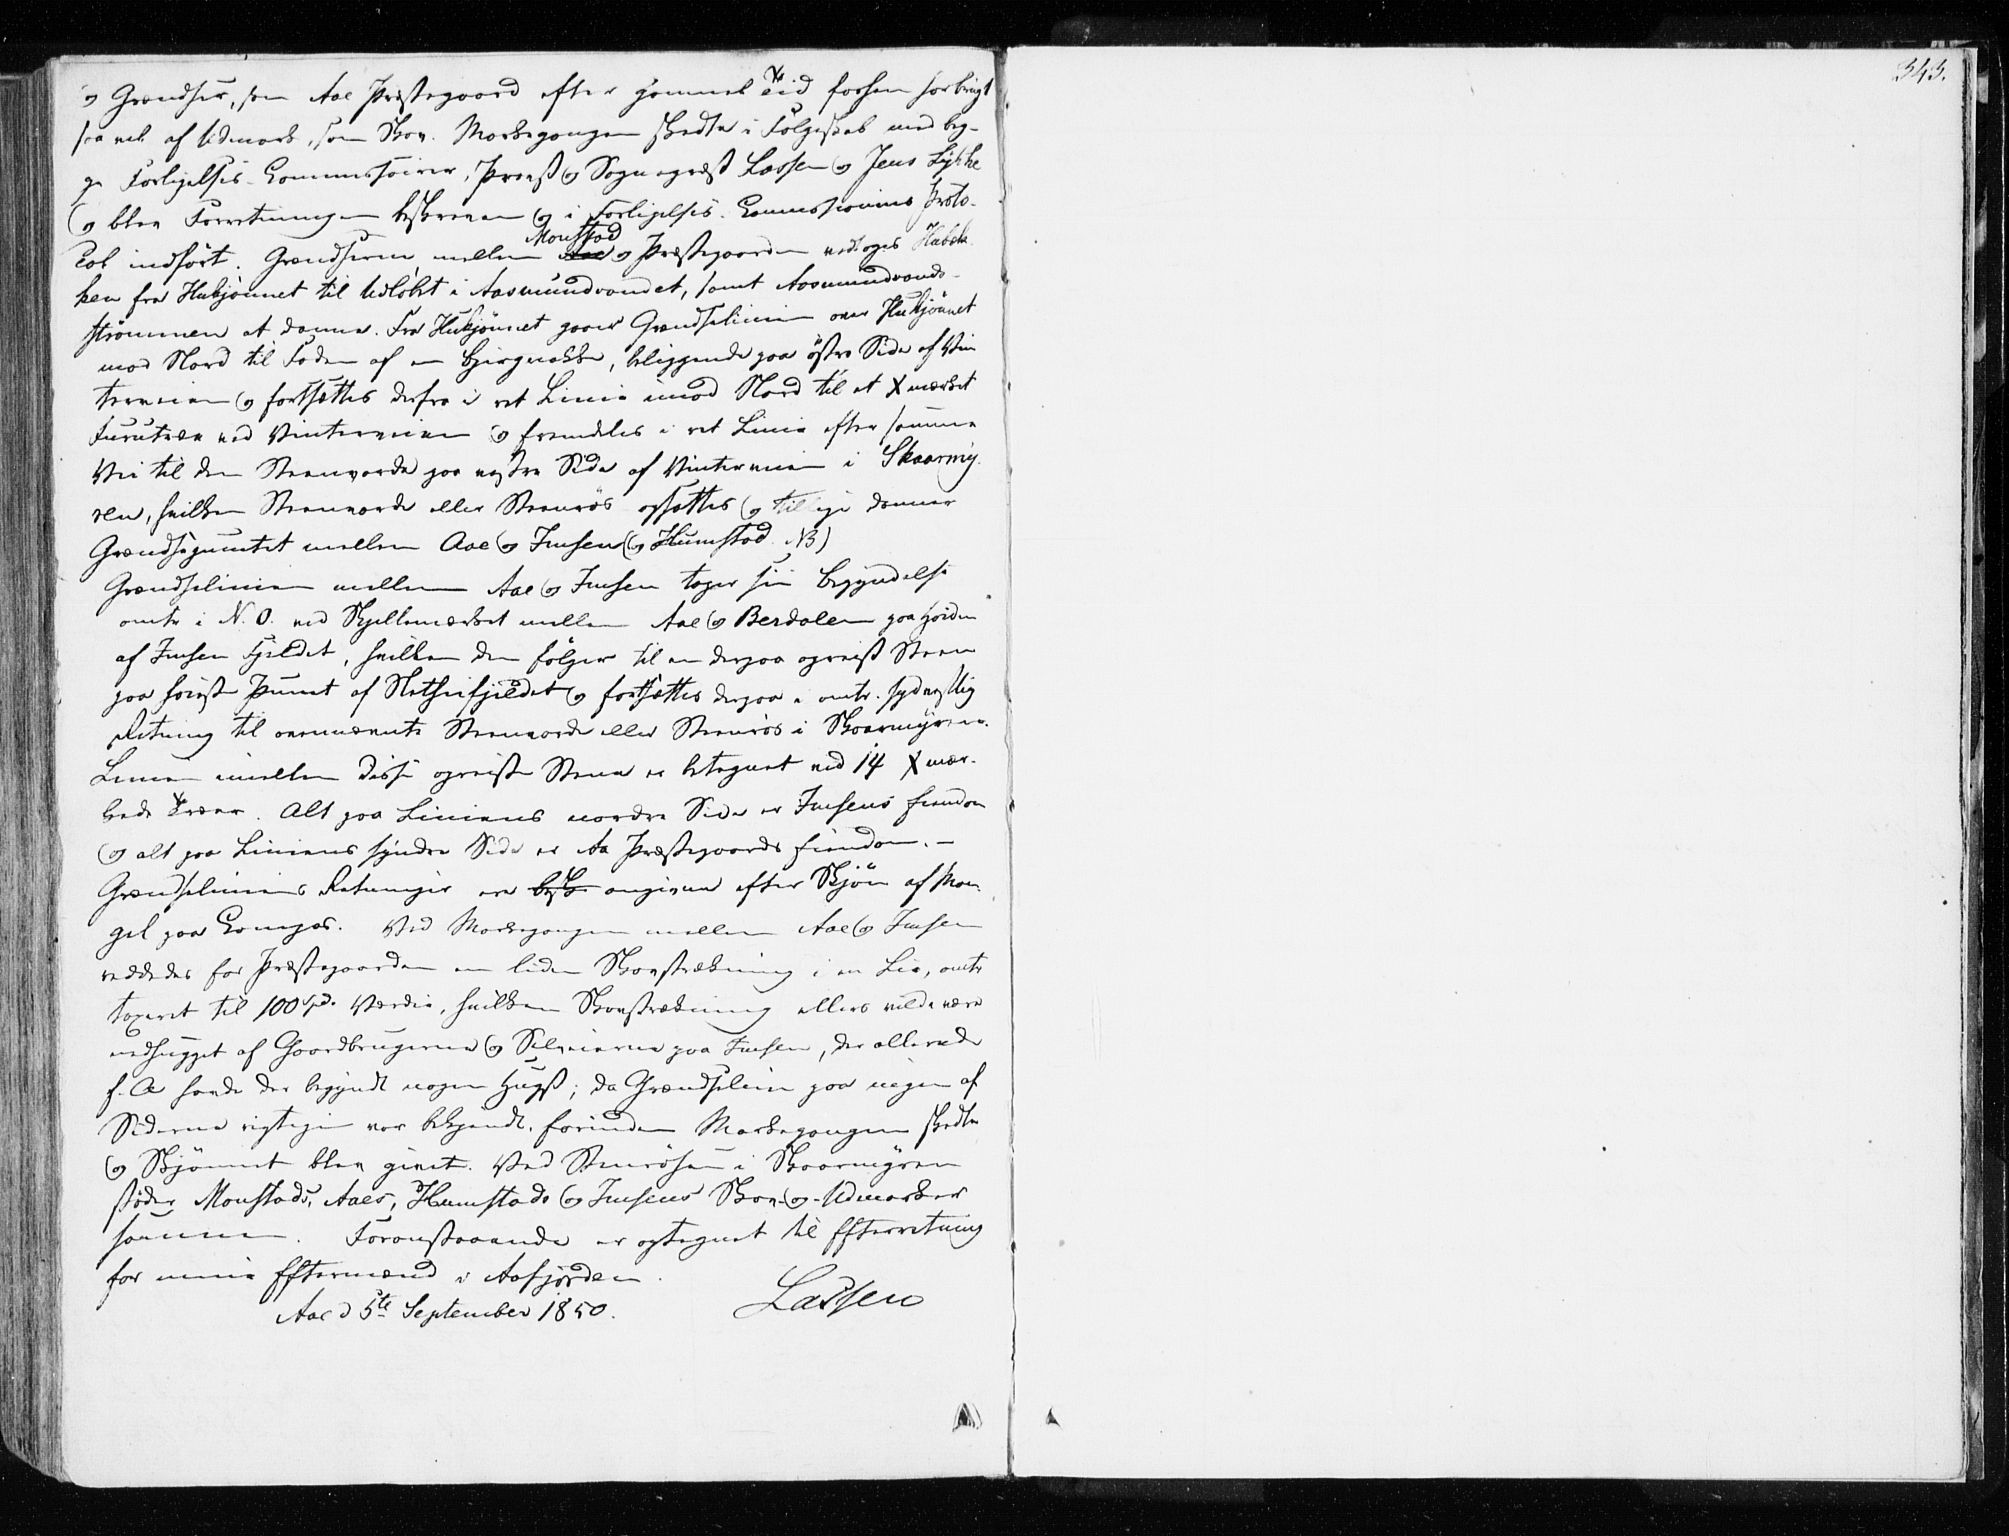 og Grændser, som Aae Præstegaard efter gammel Tid forhen har brugt
saa vel af Udmark, som Skov. Markegangen skedte i Følgeskab med beg-
ge Forligelses-Commissairer, Provst og Sognepræst Lassen og Jens Lykke
og blev Forretningen beskreven og i Forligelses-Commissionens Proto-
col indført. Grændserne mellem Aae Monstad og Præstegaarden vedtoges Habek-
ken fra Hukjønnet til Udløbet i Aasmundvandet, samt Aasmundvands-
strømmen at danne. Fra Hukjønnet gaaer Grændselinien over Hukjønnet
mod Nord til Foden af en Bjergnakke, beliggende paa østre Side af Vin
terveien og fortsættes derfra i ret Linie imod Nord til et X mærket
Furutræe ved Vinterveien og fremdeles i ret Linie efter samme
Vei til den Steenvarde paa vestre Side af Vinterveien i Skaarmy-
ren, hvilken Steenvarde eller Steenrøs opsattes og tillige danner
Grændsepunctet mellem Aae og Imsen (og Humstad NB)
Grændselinien mellem Aae og Imsen tager sin Begyndelse
omtr i N. O. ved Skjellemærket mellem Aae og Berdalen paa Høiden
af Imsen Fjeldet, hvilken den følger til en derpaa opreist Steen
paa høieste Punct af fjeldet og fortsættes derpaa i omtr. sydvestlig
Retning til ovennævnte Steenvarde eller Steenrøs i Skaarmyren.
Linien imellem disse opreiste Stene er betegnet ved 14 X mær-
kede Træer. Alt paa Liniens nordre Side er Imsens Eiendom
og alt paa Liniens syndre Side er Aa Præstegaards Eiendom. -
Grændseliniens Retninger ere besk angivne efter Skjøn af Man-
gel paa Compas. Ved Markegangen mellem Aae og Imsen
reddedes for Præstegaarden en liden Skovstrækning i en Lie, omtr
taxeret til 100 Spd. Værdie, hvilken Skovstrækning ellers vilde være
nedhugget af Gaardbrugerne og Selveierne paa Imsen, der allerede
f. A havde der begyndt nogen Hugst; da Grændselinien paa ingen af
Siderne rigtigen var bekjendt, førinden Markegangen skedte
og Skjønnet blev givet. Ved Steenrøsen i Skaarmyren
støder Monstads, Aaes, Humstads og Imsens Skov- og Udmarker
sammen. Foranstaaende er optegnet til Efterretning
for mine Eftermænd i Aafjorden.
Aae d 5te September 1850. Lassen
343.